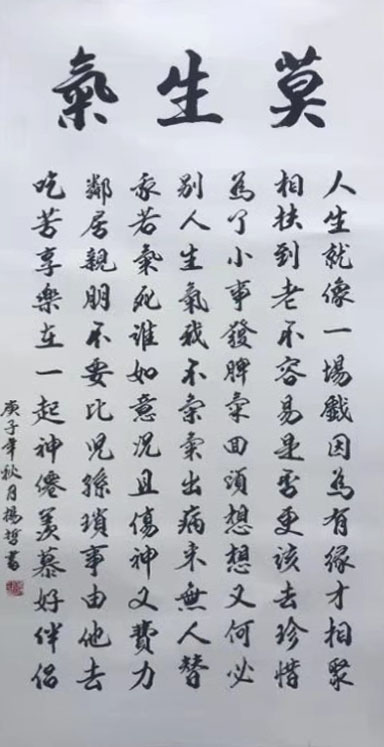 莫生氣
人生就像一場戲因為有緣才相聚
相扶到老不容易是否更該去珍惜
為了小事發脾氣回頭想想又何必
别人生氣我不氣氣出病来無人替
我若氣死誰如意况且傷神又費力
鄰居親朋不要比兒孫瑣事由他去
吃苦享樂在一起神僊羨慕好伴侣
庚子年秋月楊哲書